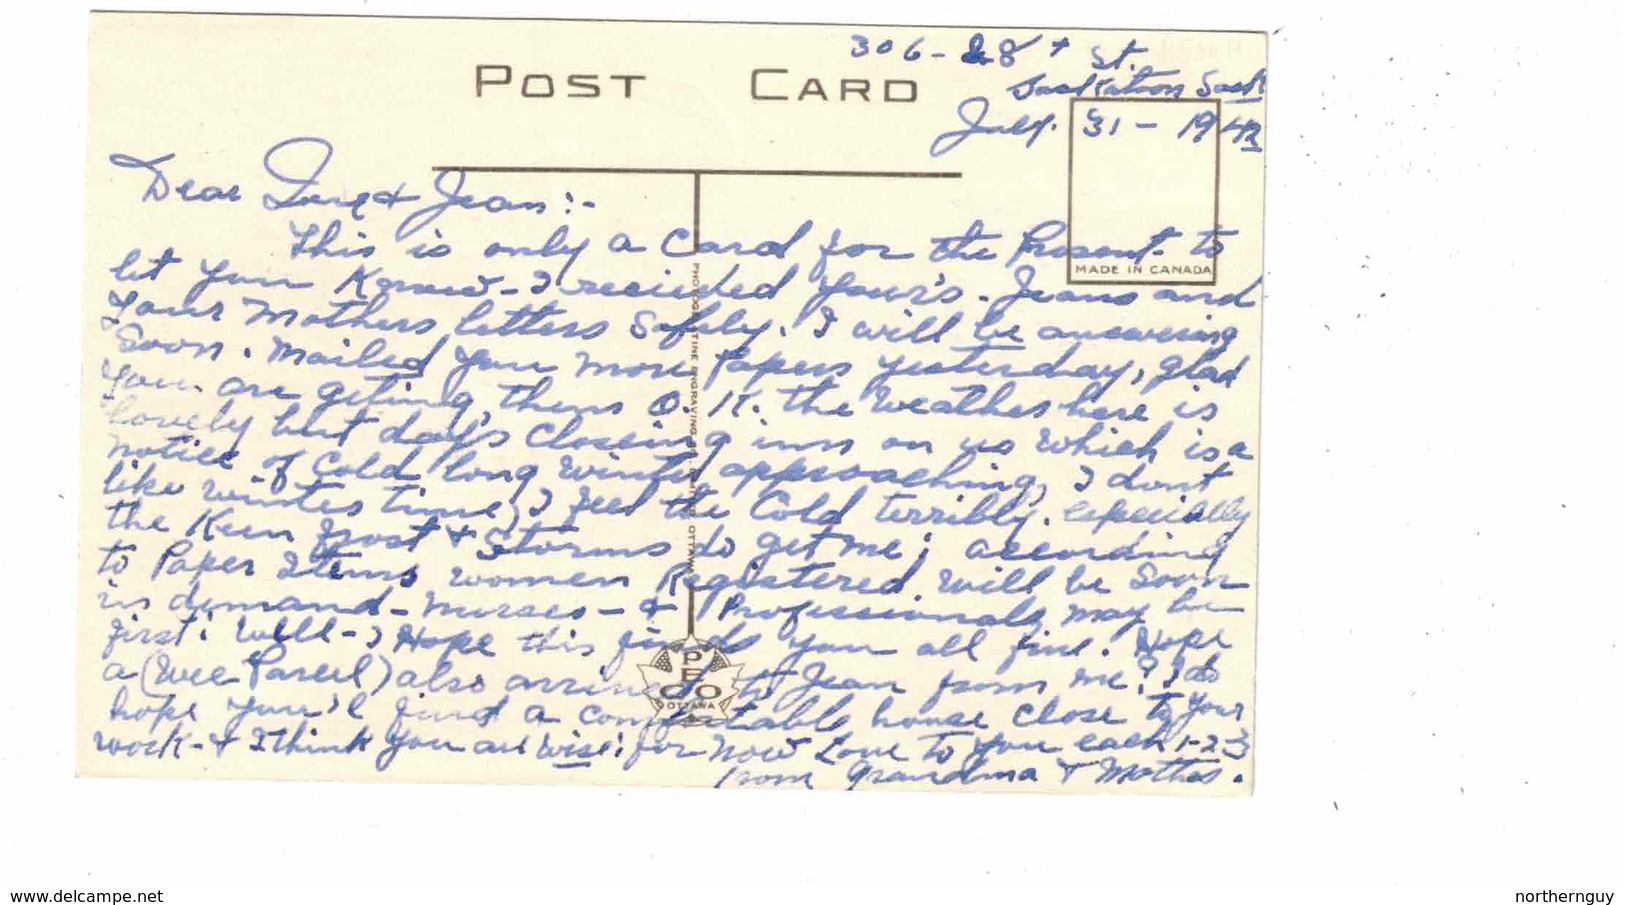 306 - 28 + St.
Saskatoon Sask
POST CARD
July. 31 - 1942
Dear & Jean :-
This is only a Card for the Present. to
MADE IN CANADA
let you Know - I recieded your's - Jeans and
your Mothers letters Safely. I will be answering
Soon. Mailed you more Papers yesterday, glad
you are geting, them O.K. the Weather here is
lovely but day's closeing inn on us which is a
notice of Cold long Winter approaching, I dont
like winter time, I feel the Cold terribly. especially
the Keen Frost & Storms do get me; according
to Paper Items women Registered will be Soon
in demand - Nurses - & Professionals may be
first. Well - I Hope this finds you all fine. Hope
a (Wee Parcel) also arrived to Jean from me? I do
hope you'l find a comfortable house close to your
work - & I think you are wise: for now Love to you each 1-2-3
from Grandma & Mother.
PECO
OTTAWA
www.delcampe.net
northernguy